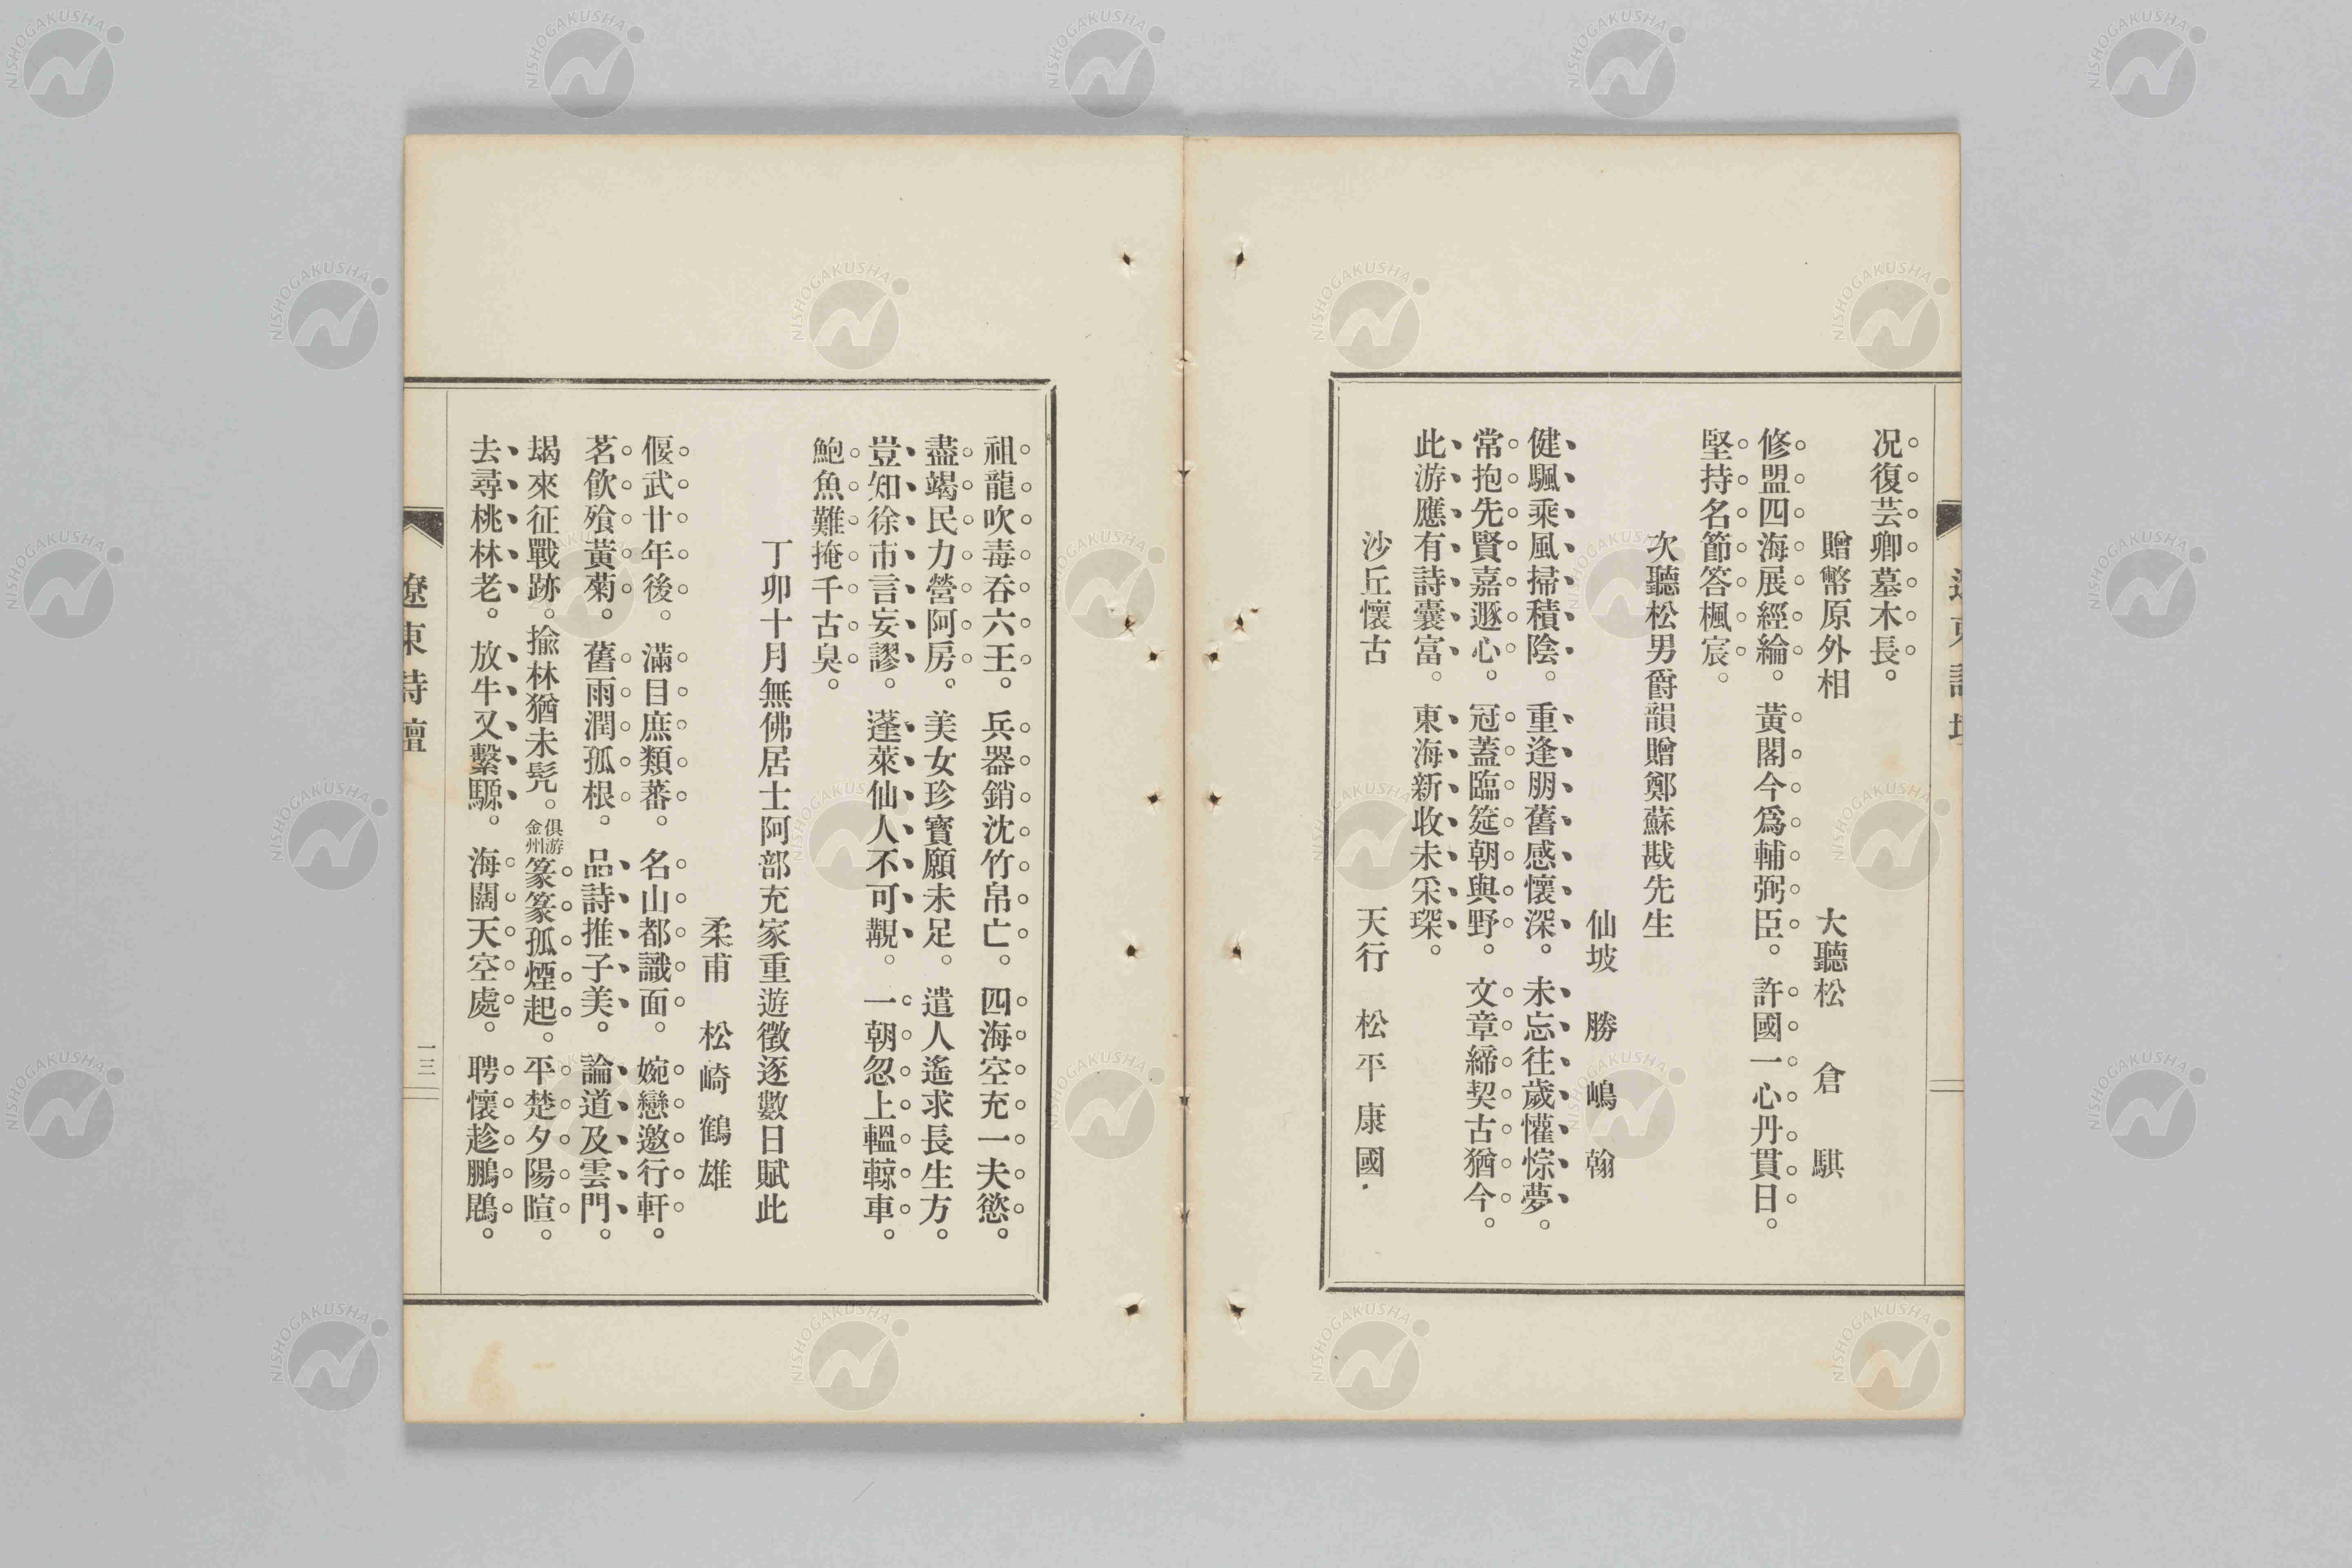 况復芸卿墓木長。
贈幣原外相 大聽松 倉 騏
修盟四海展經綸。黃閣今爲輔弼臣。許國一心丹貫日。
堅持名節答楓宸。
次聽松男爵韻贈鄭蘇戡先生
仙坡 勝 嶋 翰
健颿乘風掃積陰。重逢朋舊感懷深。未忘往歲懽悰夢。
常抱先賢嘉遯心。冠蓋臨筵朝與野。文章締契古猶今。
此游應有詩囊富。東海新收未采琛。
沙丘懷古 天行 松平康國
祖龍吹毒吞六王。兵器銷沈竹帛亡。四海空充一夫慾。
盡竭民力營阿房。美女珍寶願未足。遣人遙求長生方。
豈知徐市言妄謬。蓬萊仙人不可覯。一朝忽上轀輬車。
鮑魚難掩千古臭。
丁卯十月無佛居士阿部充家重遊徵逐數日賦此
柔甫 松崎鶴雄
偃武廿年後。滿目庶類蕃。名山都識面。婉戀邀行軒。
茗飮飱黃菊。舊雨潤孤根。品詩推子美。論道及雲門。
朅來征戰跡。揄林猶未髠。俱游金州篆篆孤煙起。平楚夕陽暄。
去尋桃林老。放牛又繫騵。海闊天空處。聘懷趁鵬鶤。
遼東詩壇
一三
NISHOGAKUSHA